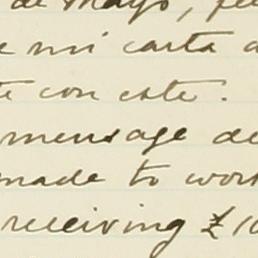 de Mayo, fe
e mi carta a
te con este.
mensage de
made to wor
receiving £10